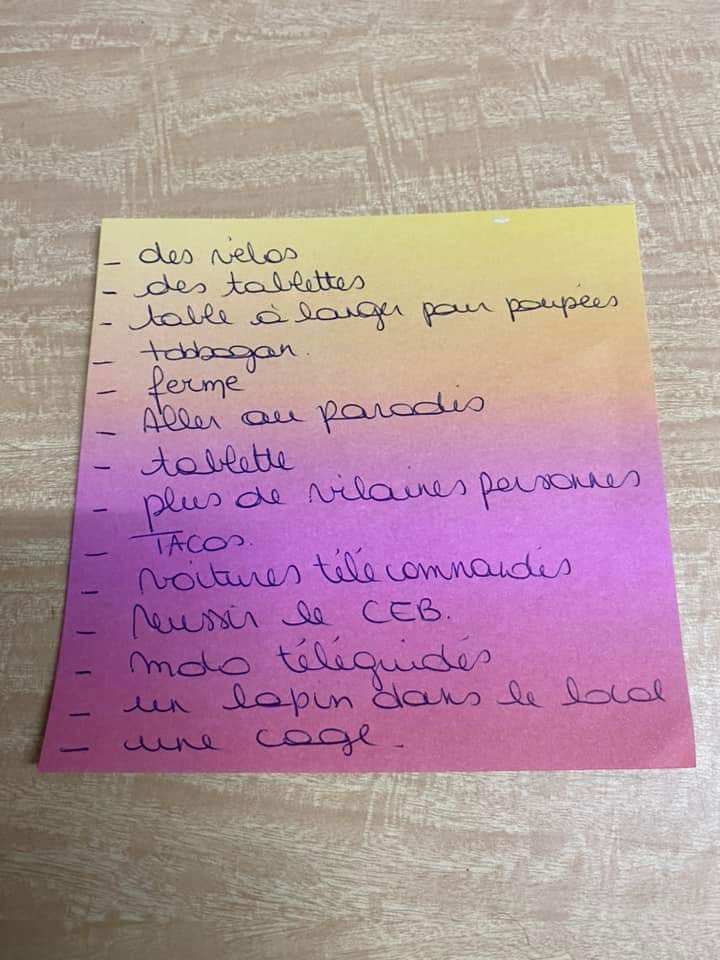 - des vélos
- des tablettes
- table à langer pour poupées
- tobbogan.
- ferme
- Aller au paradis
- tablette
- plus de vilaines personnes
- TACOS.
- voitures télécommandés
- reussir le CEB.
- moto téléguidés
- un lapin dans le local
- une cage.